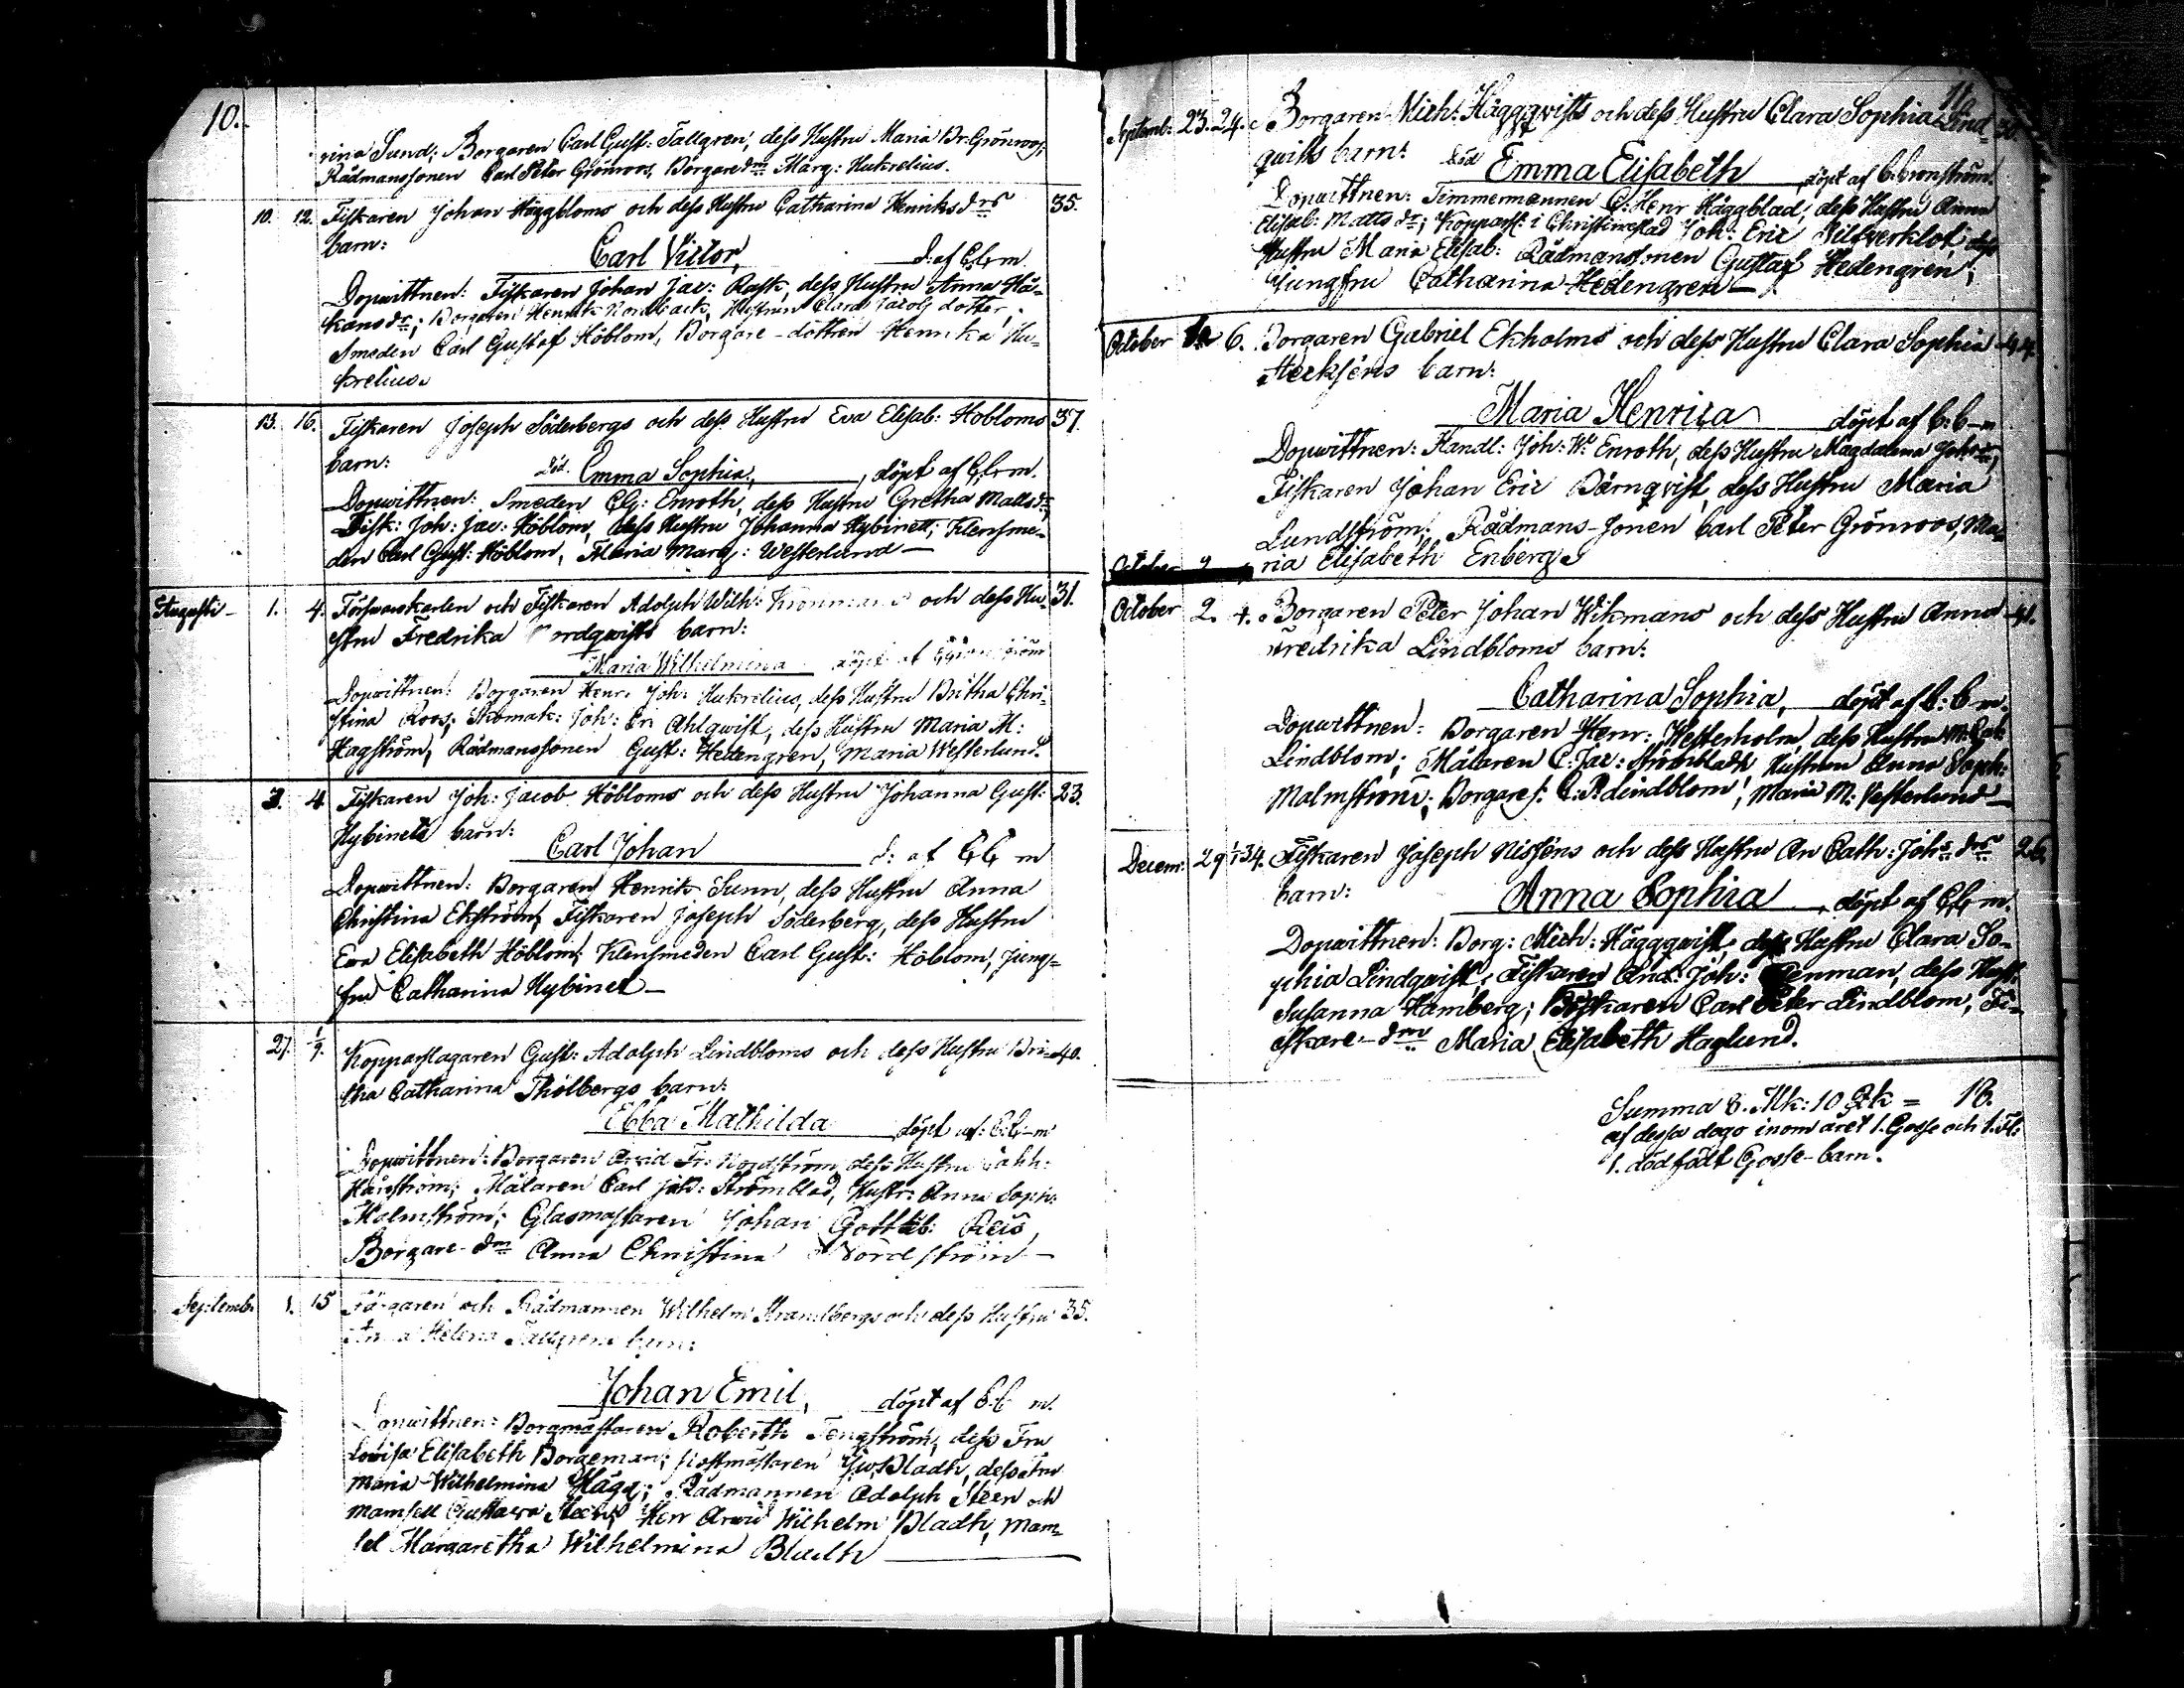 10.
rina Sund; Borgaren Carl Gust: Tallgren, dess Hustru Maria Br: Grönroos;
Rådmanssonen Carl Peter Grönroos, Borgare dn Marg: Hukrelius.
10. 12. Fiskaren Johan Häggbloms och dess Hustru Catharina Henriks drs 35.
barn:
Carl Victor, d: af C.C-m
Dopwittnen: Fiskaren Johan Jac: Rask, dess Hustru Anna Hå-
kans dr; Borgaren Henrik Nordback, Hustrun Clara Jacobs dotter;
Smeden Carl Gustaf Höblom, Borgare-dottren Henrika Hu-
krelius.
13. 16. Fiskaren Joseph Söderbergs och dess Hustru Eva Elisab: Höbloms 37.
barn:
död. Emma Sophia, döpt af C.C-m.
Dopwittnen: Smeden Elg: Enroth, dess Hustru Gretha Matts dr,
Fisk: Joh: Jac: Höblom, dess Hustru Johanna Hybinett; Klensme-
den Carl Gust: Höblom, Maria Marg: Westerlund—
Augusti— 1. 4. Försvarskarlen och Fiskaren Adolph Wilh: Kronmans och dess Hu- 31.
stru Fredrika Nordqwists barn:
Maria Wilhelmina döpt af
Dopwittnen: Borgaren Henr: Joh: Hukrelius, dess Hustru Britha Chri-
stina Roos; Skomak: Joh: Er: Ahlqwist, dess Hustru Maria M:
Hagström, Rådmanssonen Gust: Hedengren, Maria Westerlund.
3. 4. Fiskaren Joh: Jacob Höbloms och dess Hustru Johanna Gust: 23.
Hybinets barn:
Carl Johan d: af C.C m
Dopwittnen: Borgaren Henrik Sunn, dess Hustru Anna
Christina Ekström; Fiskaren Joseph Söderberg, dess Hustru
Eva Elisabeth Höblom; Klensmeden Carl Gust: Höblom, Jung-
fru Catharina Hybinet—
27. 1/9. Kopparslagaren Gust: Adolph Lindbloms och dess Hustru Bri- 40.
tha Catharina Thölbergs barn:
Ebba Mathilda döpt af: C.C-m
Dopwittnen: Borgaren Arvid Fr: Nordström, dess Hustru Cath:
Målaren Carl Jak: Strömblad, Hustr: Anna Soph:
Malmström; Glasmästaren Johan Gottlib: Reis,
Borgare-dn Anna Christina Nordström—
Septemb: 1. 15 Färgaren och Rådmannen Wilhelm Strandbergs och dess Hustru 35.
Anna Helena Tallgrens barn:
Johan Emil, döpt af C.C m.
Dopwittnen: Borgmästaren Roberth Tengström, dess Fru
Lovisa Elisabeth Borgeman; Postmästaren Bladh, dess Fru
Maria Wilhelmina Hägg; Rådmannen Adolph Steen och
Mamsell Gustava Steen; Herr Arvid Wilhelm Bladh, Mam-
sel Margaretha Wilhelmina Bladh
11.
Septemb: 23. 24. Borgaren Mich: Häggqvists och dess Hustru Clara Sophia Lind- 30.
qvists barn:
död Emma Elisabeth döpt af C. Cronström.
Dopwittnen: Timmermannen C: Henr Häggblad, dess Hustru Anna
Elisab: Matts dr; Kopparsl: i Christinestad Joh: Eric Silfverklot, dess
Hustru Maria Elisab: Rådmanssonen Gustaf Hedengren;
Jungfru Catharina Hedengren—
October 6. Borgaren Gabriel Ekholms och dess Hustru Clara Sophia 44.
barn:
Maria Henrica döpt af C: C-m
Dopwittnen: Handl: Joh: W: Enroth, dess Hustru Magdalena Johs dr,
Fiskaren Johan Eric Bärnqvist, dess Hustru Maria
Lundström; Rådmans-sonen Carl Peter Grönroos, Ma-
ria Elisabeth Enberg
October 2. 4. Borgaren Peter Johan Wikmans och dess Hustru Anna 41.
Fredrika Lindbloms barn:
Catharina Sophia, döpt af C: C m.
Dopwittnen: Borgaren Henr: Westerholm, dess Hustru M: Cath:
Lindblom; Målaren C: Jac: Strömbladh, Hustrun Anna Soph:
Malmström; Borgares: C. P. Lindblom, Maria M: Vesterlund—
Decem: 29 1/1 34. Fiskaren Joseph Nisséns och dess Hustru An Cath: Johs drs 26.
barn:
Anna Sophia, döpt af C.C m.
Dopwittnen: Borg: Mich: Häggqwist, dess Hustru Clara So-
phia Lindqvist; Fiskaren And: Joh: Penman, dess Hust:
Susanna Hamberg; Fiskaren Carl Peter Lindblom, Fi-
skare-dn Maria Elisabeth Haglund.
Summa 8. Mk: 10 Qk = 18.
af dessa dogo inom året 1. Gosse och 1. Fl:
1. dödfödt Gosse-barn.